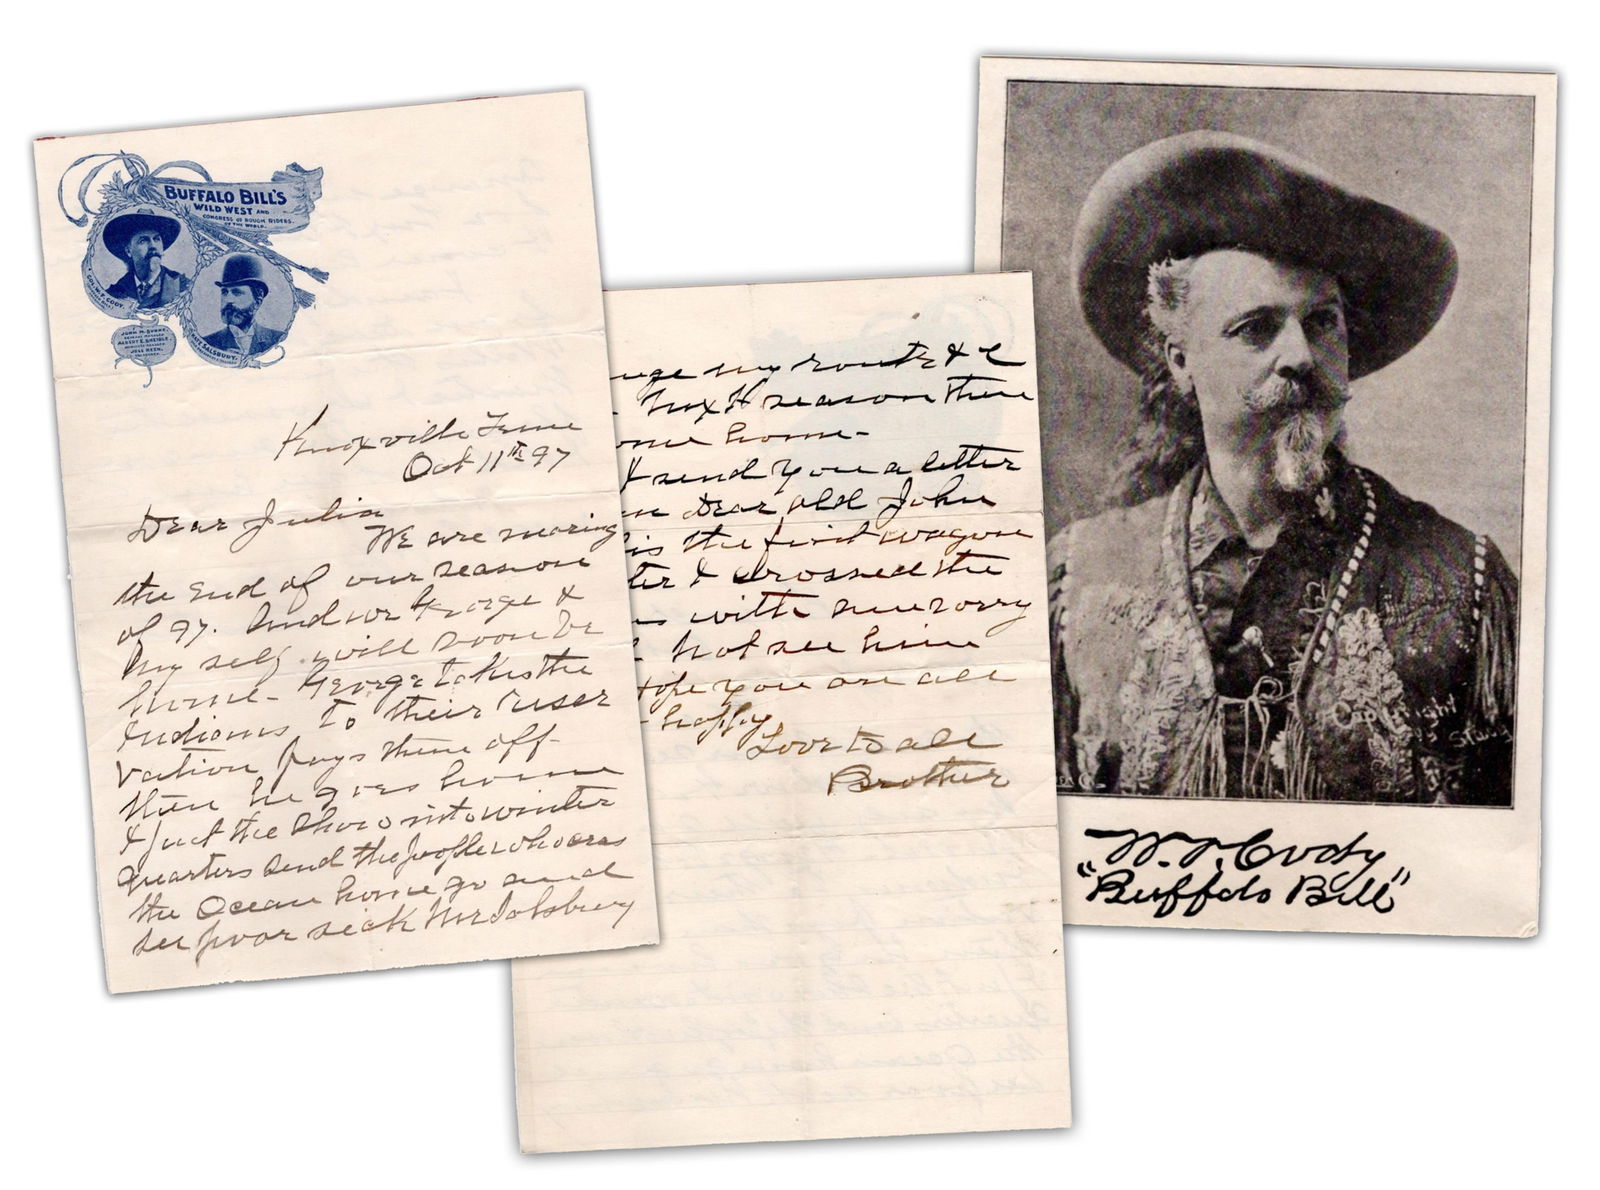 BUFFALO BILL'S
WILD WEST AND
CONGRESS OF ROUGH RIDERS
OF THE WORLD.
COL. W. F. CODY.
NATE SALSBURY.
JOHN M. BURKE
ALBERT E. SHEIBLE
JULE KEEN
Knoxville Tenn
Oct 11th 97
Dear Julia
We are nearing
the end of our season
of 97. And we George &
my self will soon be
home - George takes the
Indians to their reser
vation pays them off
then he goes home
& I put the show into winter
quarters send the people who cross
the Ocean home go and
see poor sick Mr Salsbury
my route & I
next season then
home -
I send you a letter
Dear old John
is the first wagon
& crossed the
with me sorry
not see him
hope you are all
happy
Love to all
Brother
Copyright
Stacy
W. F. Cody
"Buffalo Bill"